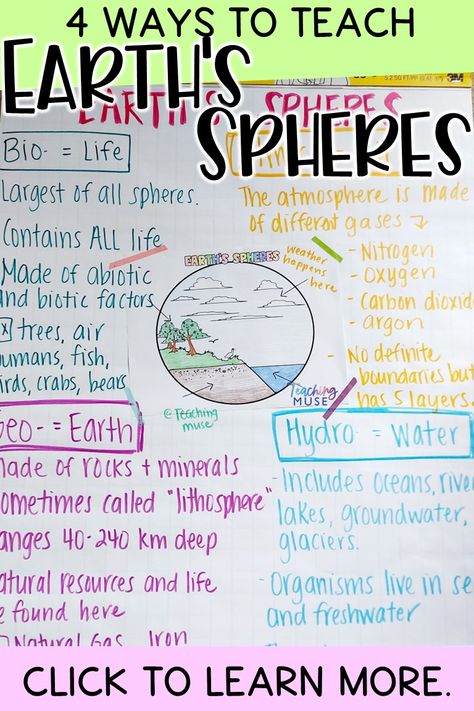 4 WAYS TO TEACH
EARTH'S
SPHERES
EARTH'S SPHERES
Bio- = Life
Largest of all spheres.
Contains ALL life
Made of abiotic
and biotic factors
trees, air
umans, fish,
irds, crabs, bears
The atmosphere is made
of different gases
- Nitrogen
- Oxygen
- Carbon dioxid
- argon
- No definite
boundaries but
has 5 layers.
EARTH'S SPHERES
Weather
happens
here
Teaching
MUSE
@Teaching
muse
Geo- = Earth
Made of rocks + minerals
Sometimes called "lithosphere"
anges 40-240 km deep
atural resources and life
e found here
Natural Gas Iron
Hydro- = Water
- Includes oceans, rive
lakes, groundwater,
glaciers.
- Organisms live in se
and freshwater
CLICK TO LEARN MORE.